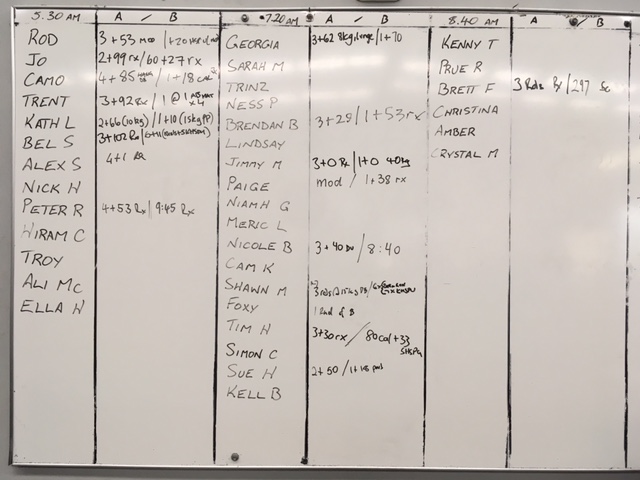 5.30 AM A / B 7.20 AM A / B 8.40 AM A / B
ROD 3+53 mod
JO 2+99 rx/60+27 rx
CAMO 4+85 / 1+18 cal
TRENT 3+92 Rx / 1 @
KATH L 2+66 (10kg) / 1+10 (15kg PP)
BEL S 3+102 Rx/
ALEX S 4+1 RX
NICK H
PETER R 4+53 Rx / 9:45 Rx
HIRAM C
TROY
ALI MC
ELLA H
GEORGIA 3+62 8kg, lunge / 1+70
SARAH M
TRINZ
NESS P
BRENDAN B 3+28 / 1+53 rx
LINDSAY
JIMMY M 3+0 Rx / 1+0 40kg
PAIGE mod / 1+38 rx
NIAMH G
MERIC L
NICOLE B 3+40 / 8:40
CAM K
SHAWN M 3 rds
FOXY 1 Rnd of B
TIM H 3+30 rx / 80 cal + 33
SIMON C
SUE H 2+50 / 1+18
KELL B
KENNY T
PRUE R
BRETT F 3 Rds Rx / 297 Sc
CHRISTINA
AMBER
CRYSTAL M